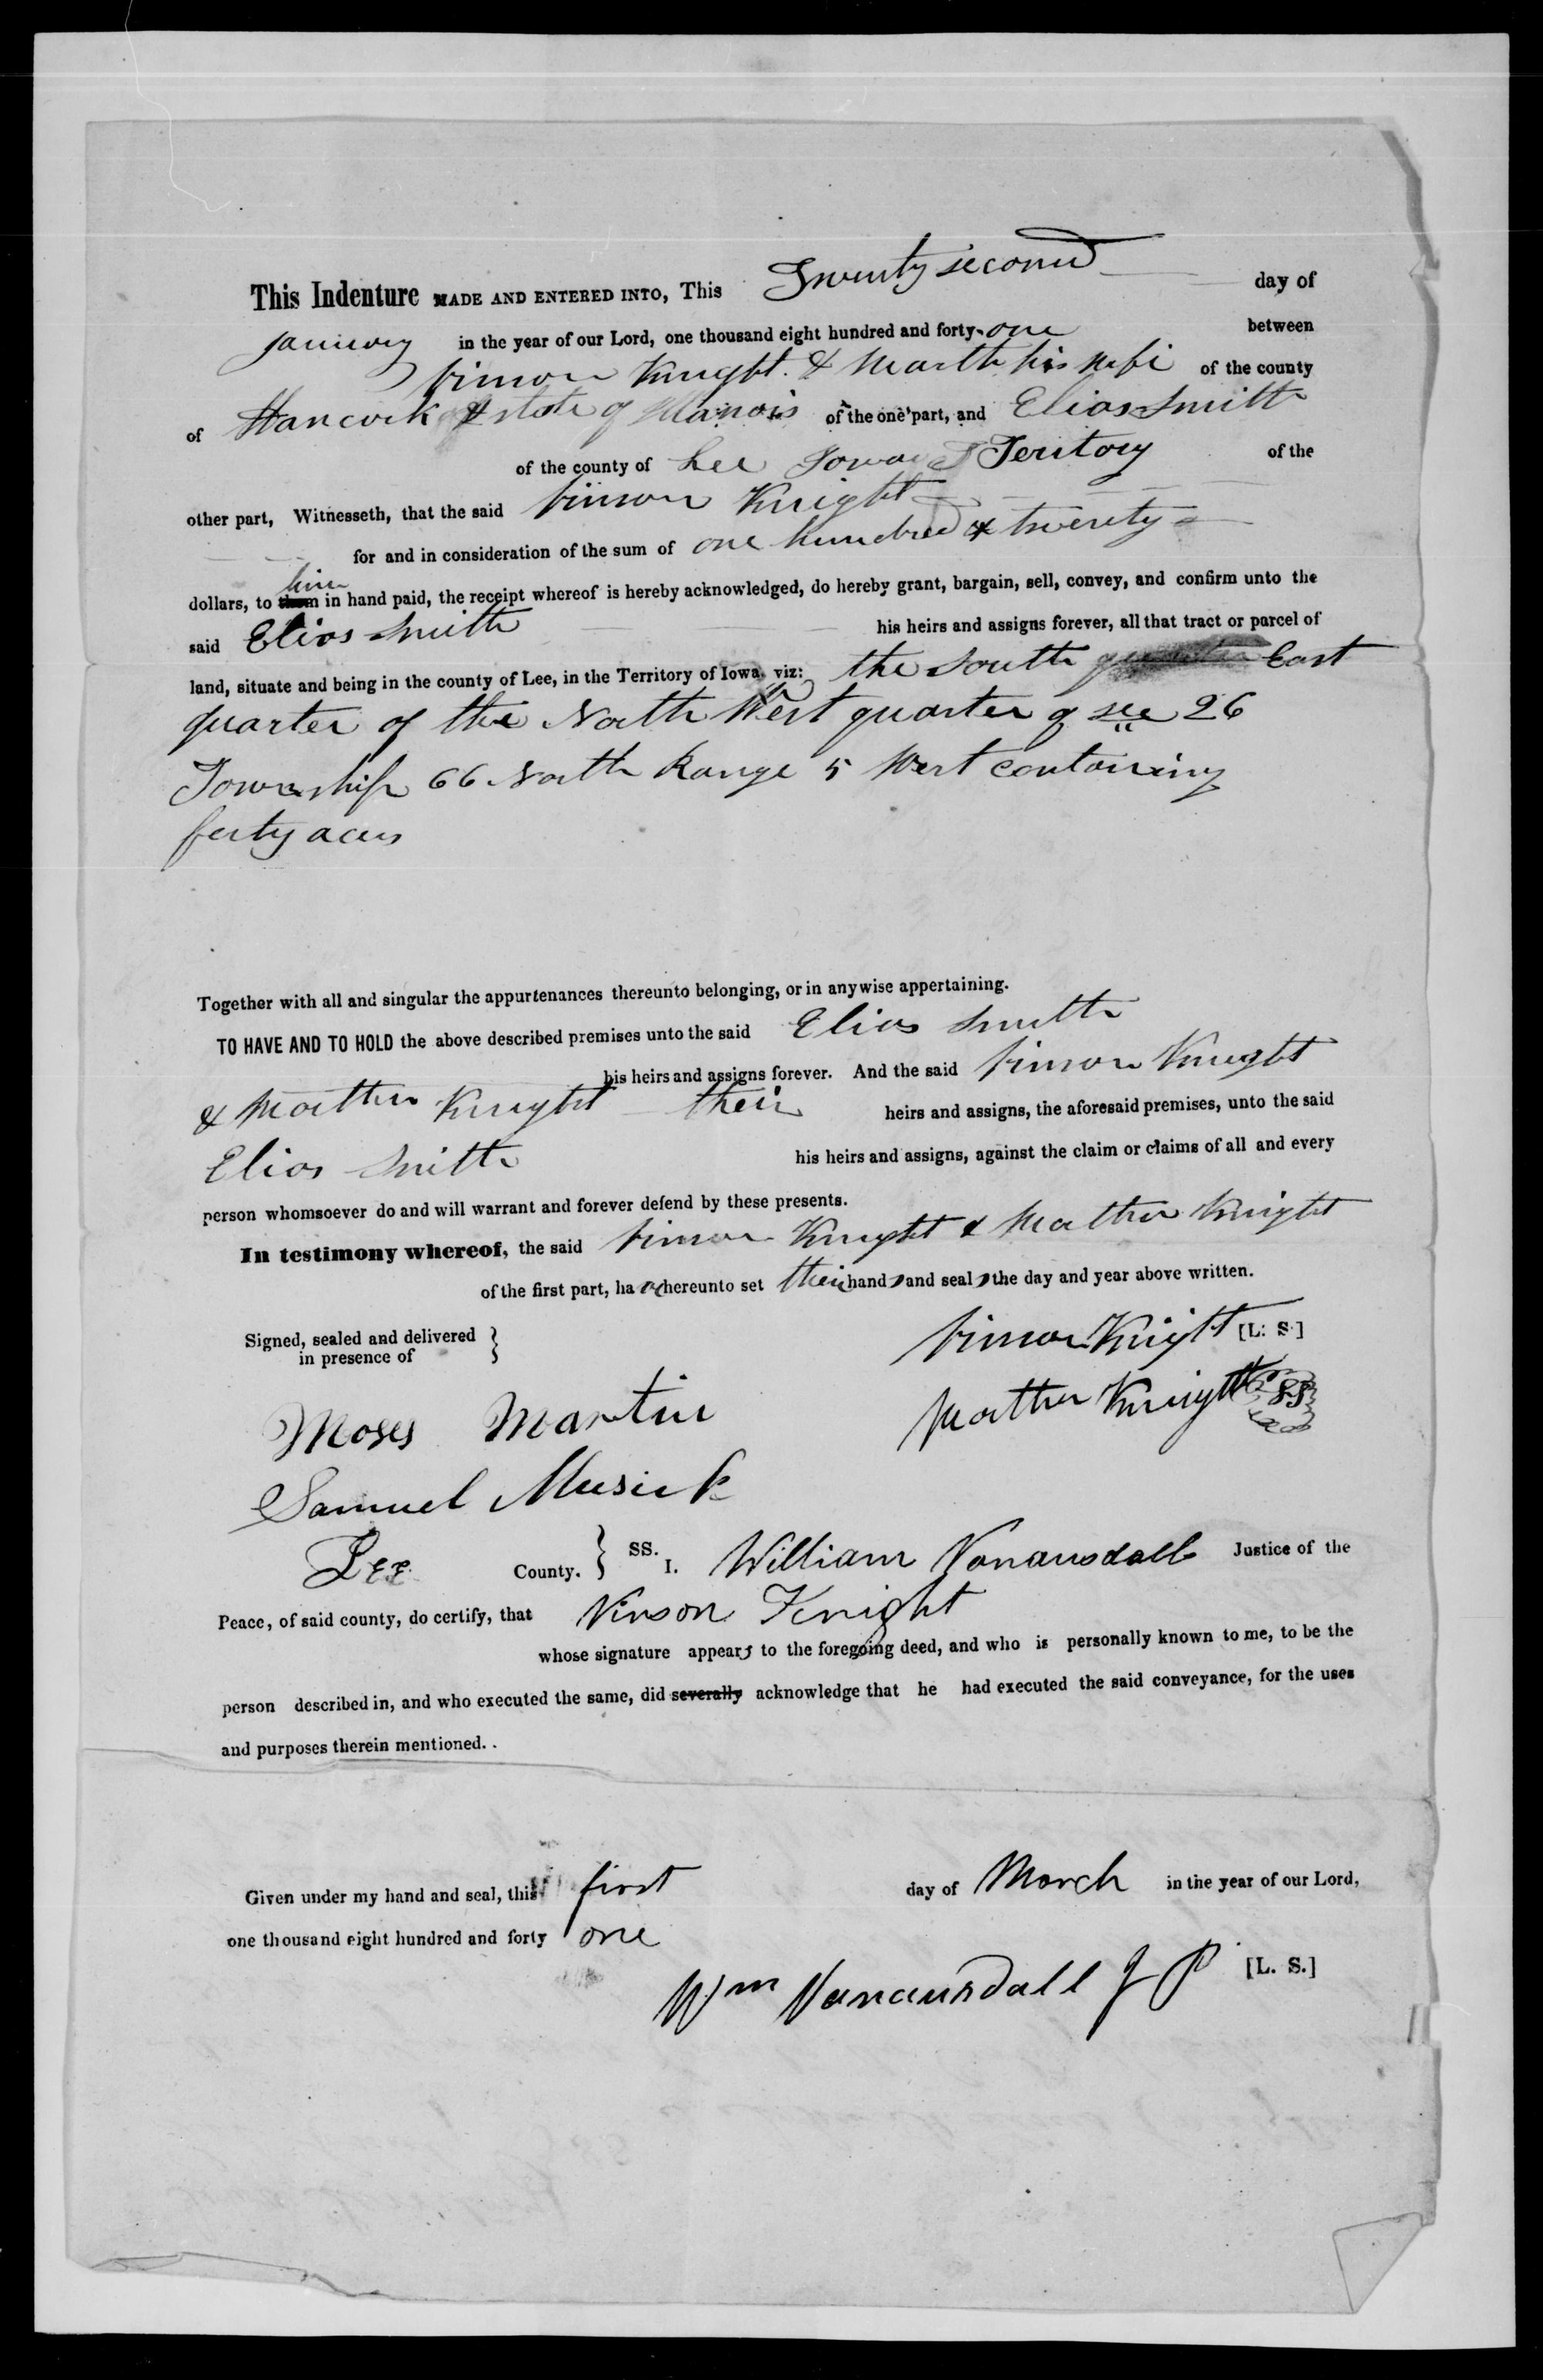 This Indenture MADE AND ENTERED INTO, This Twenty second day of
January in the year of our Lord, one thousand eight hundred and forty-one between
Vinson Knight & Martha his wife of the county
of Hancock & state of Illanois of the one part, and Elias Smith
of the county of Lee Iowa Teritory of the
other part, Witnesseth, that the said Vinson Knight
for and in consideration of the sum of one hundred & twenty
him
dollars, to them in hand paid, the receipt whereof is hereby acknowledged, do hereby grant, bargain, sell, convey, and confirm unto the
said Elias Smith his heirs and assigns forever, all that tract or parcel of
land, situate and being in the county of Lee, in the Territory of Iowa, viz: the South East
quarter of the North West quarter of sec 26
Township 66 North Range 5 West containing
forty acers
Together with all and singular the appurtenances thereunto belonging, or in anywise appertaining.
TO HAVE AND TO HOLD the above described premises unto the said Elias Smith
his heirs and assigns forever. And the said Vinson Knight
& Martha Knight their heirs and assigns, the aforesaid premises, unto the said
Elias Smith his heirs and assigns, against the claim or claims of all and every
person whomsoever do and will warrant and forever defend by these presents.
In testimony whereof, the said Vinson Knight & Martha Knight
of the first part, have hereunto set their hands and seals the day and year above written.
Signed, sealed and delivered
in presence of
Vinson Knight [L. S.]
Martha Knight SS
Moses Martin
Samuel Musick
Lee County. } SS. I. William Vanausdall Justice of the
Peace, of said county, do certify, that Vinson Knight
whose signature appears to the foregoing deed, and who is personally known to me, to be the
person described in, and who executed the same, did severally acknowledge that he had executed the said conveyance, for the uses
and purposes therein mentioned. .
Given under my hand and seal, this first day of March in the year of our Lord,
one thousand eight hundred and forty one
Wm Vanausdall J P [L. S.]